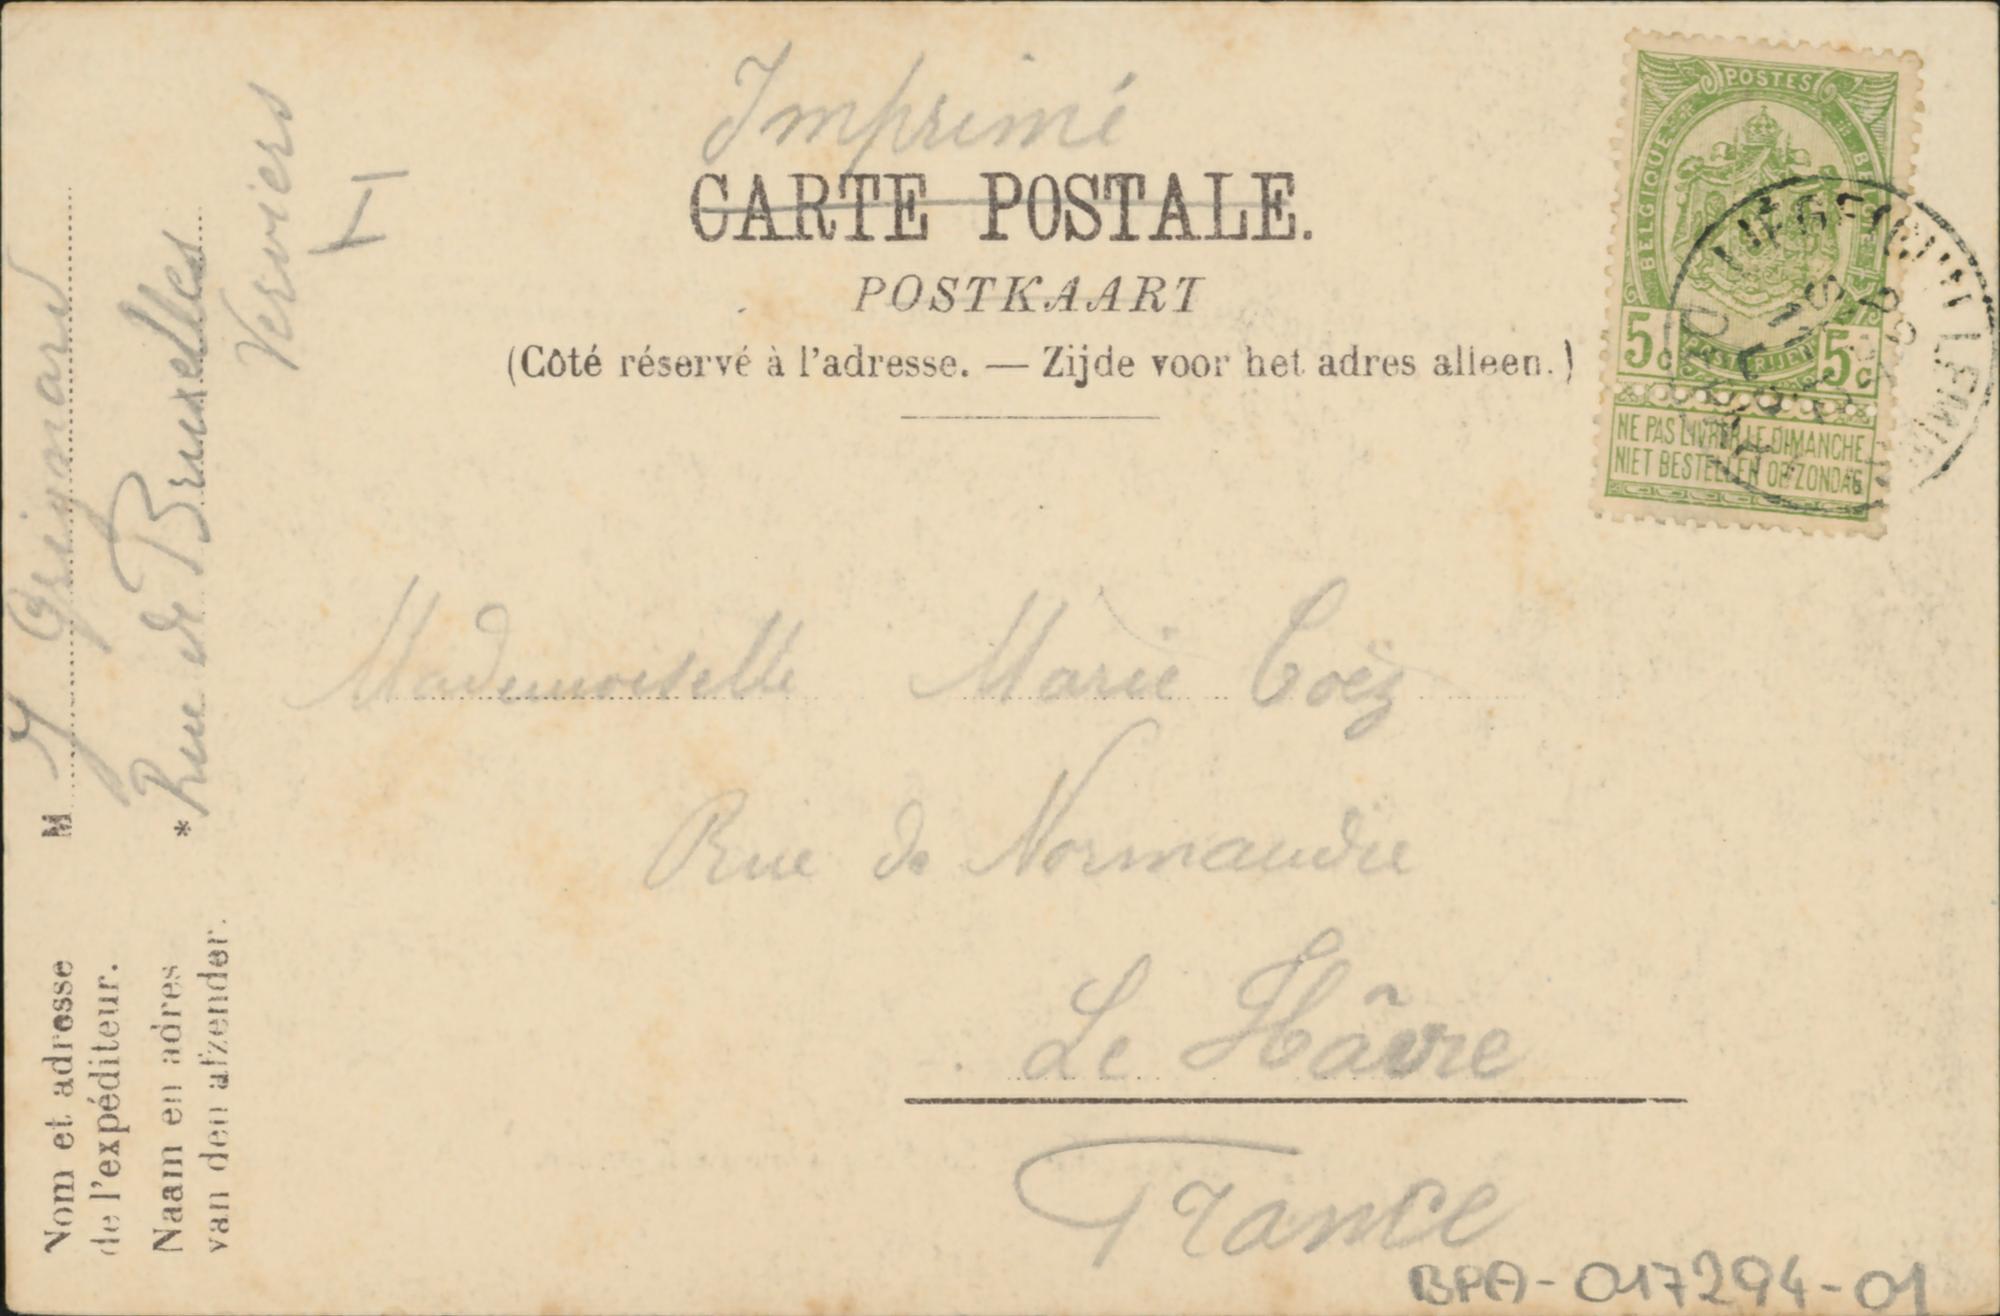 Imprimé
CARTE POSTALE.
POSTKAART
(Côté réservé à l'adresse. — Zijde voor het adres alleen.)
POSTES
BELGIQUE
5c 5c
POSTERIJEN
NE PAS LIVRER LE DIMANCHE
NIET BESTELLEN OP ZONDAG
Mademoiselle Marie Coëz
Rue de Normandie
Le Hâvre
France
BPA-017294-01
Nom et adresse
de l'expéditeur.
Naam en adres
van den afzender.
M J Greignard
* Rue de Bruxelles
Verviers